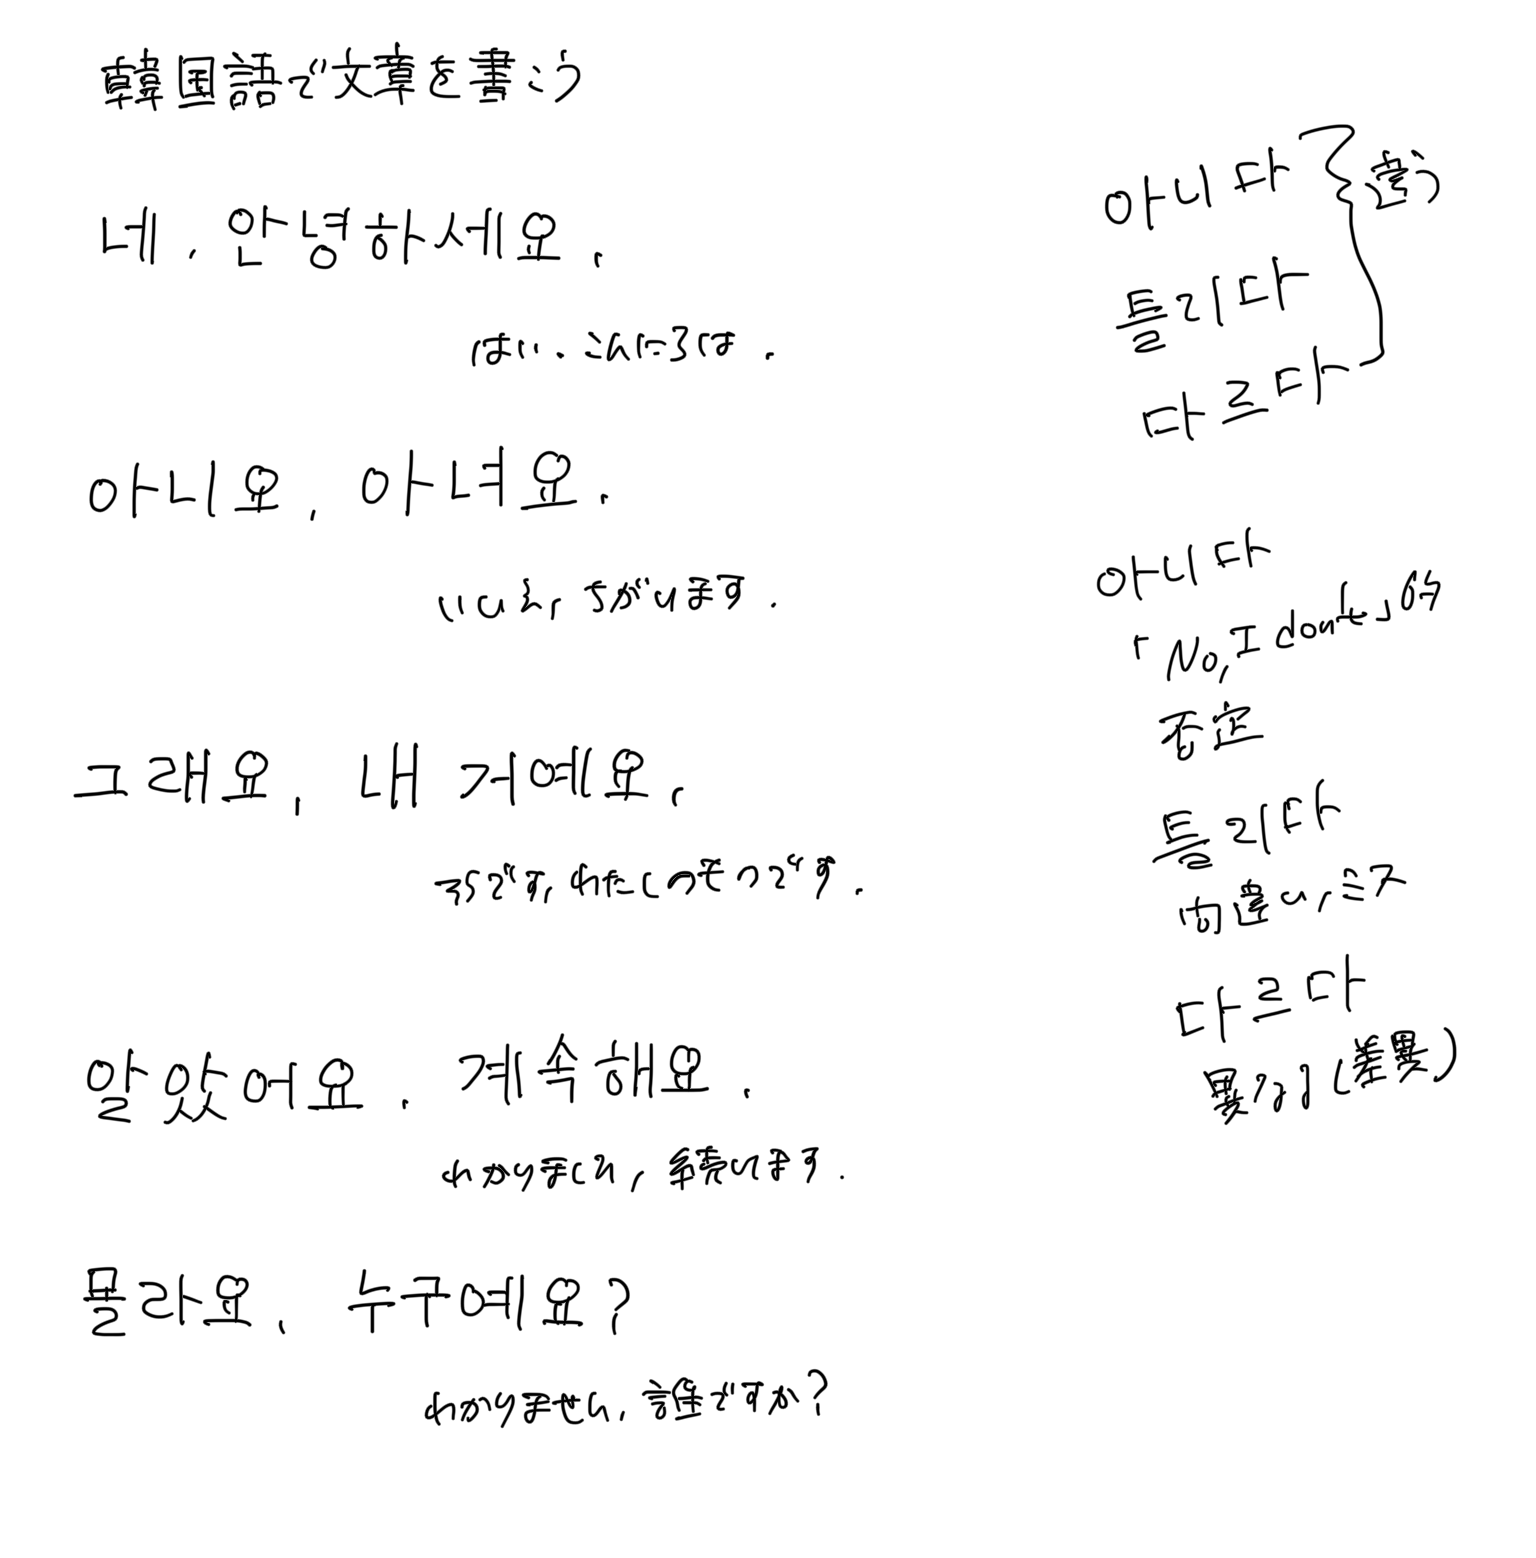 韓国語で文章を書こう
네, 안녕하세요.
はい、こんにちは.
아니요, 아녀요.
いいえ, ちがいます.
그래요, 내 거예요.
そうです, わたしのものです.
알았어요. 계속해요.
わかりました, 続けます.
몰라요, 누구예요?
わかりません, 誰ですか?
아니다
틀리다
다르다
違う
아니다
「No, I don't」的
否定
틀리다
間違い, ミス
다르다
異なる(差異)